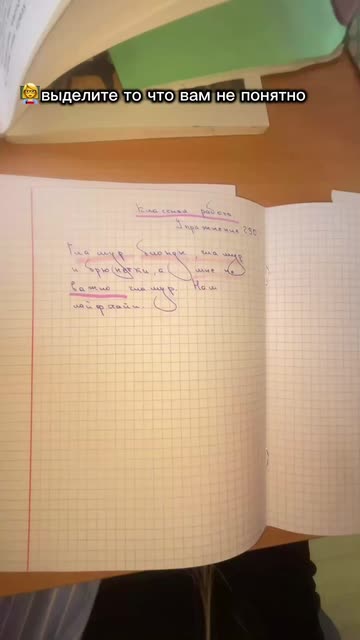 👩‍🏫выделите то что вам не понятно
Классная работа
Упражнение 290
Гламур блонды, гламур
и брюнетки, а мне не
важно гламур. Наш
лайфхайп.